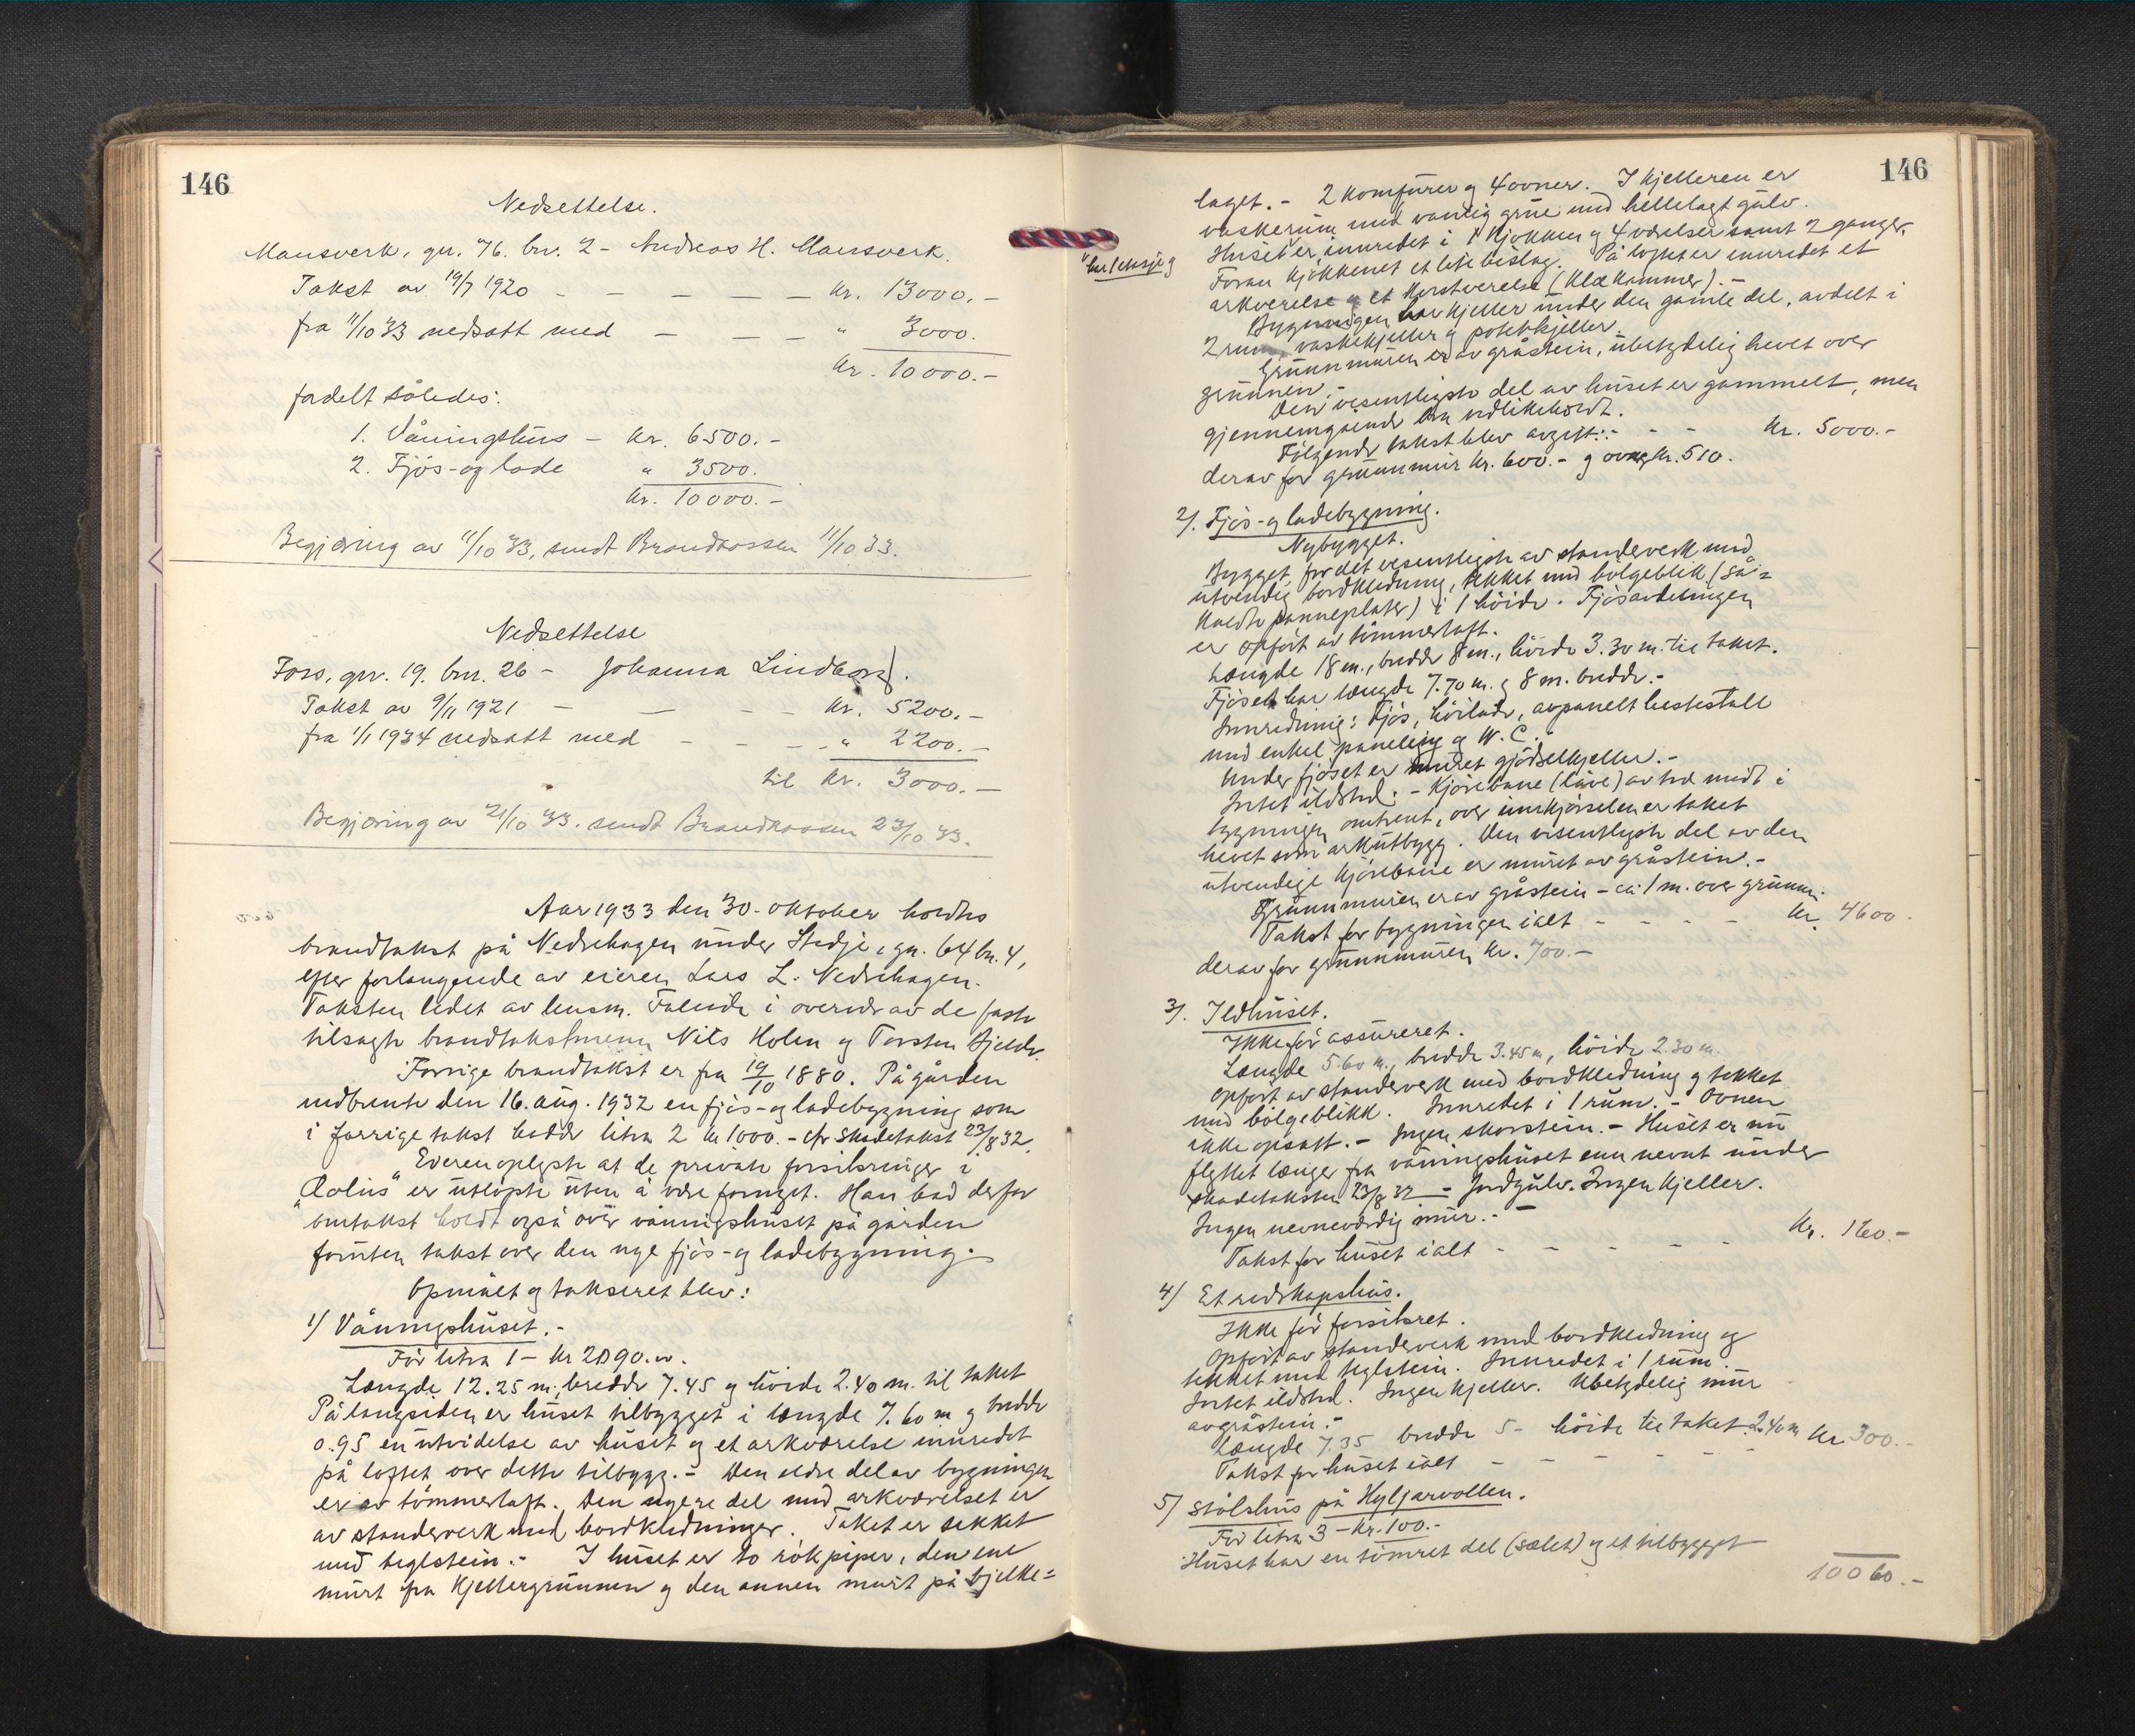 146
Nedsettelse.
Mansverk, gnr. 76. bnr. 2 - Andreas H. Mansverk.
Takst av 19/7 1920 - - - - - kr. 13000.-
fra 11/10 33 nedsatt med - - - " 3000.
kr. 10000.-
fordelt således:
1. Våningshus - kr. 6500.-
2. Fjøs- og lade " 3500.
kr. 10000.-
Begjæring av 11/10 33, sendt Brandkassen 11/10 33.
Nedsettelse
Foss, gnr. 19. bnr. 26 - Johanna Lindborg.
Takst av 9/11 1921 - - - - kr. 5200.-
fra 1/1 1934 nedsatt med - - - " 2200.-
til kr. 3000.-
Begjæring av 21/10 33. sendt Brandkassen 23/10 33.
Aar 1933 den 30. oktober holdtes
brandtakst på Nedrehagen under Stedje, gn. 64 bn. 4,
efter forlangende av eieren Lars L. Nedrehagen.
Taksten ledet av lensm. Faleide i overvær av de faste
tilsagte brandtakstmenn Nils Holen og Torsten Fjelde.
Forrige brandtakst er fra 19/10 1880. På gården
nedbrente den 16. aug. 1932 en fjøs- og ladebygning som
i forrige takst hadde litra 2 kr 1000.- cfr skadetakst 23/8 32.
Eieren oplyste at de private forsikringer i
"Æolus" er utløpte uten å være fornyet. Han bad derfor
omtakst holdt også over våningshuset på gården
foruten takst over den nye fjøs- og ladebygning.
Opmålt og taksert blev:
1) Våningshuset.-
Før litra 1 - kr 2090.00.
Længde 12.25 m, bredde 7.45 og høide 2.40 m. til taket
På langsiden er huset tilbygget i længde 7.60 m og bredde
0.95 en utvidelse av huset og et arkværelse innredet
på loftet over dette tilbygg.- Den eldre del av bygningen
er av tømmerlaft. Den nyere del med arkværelset er
av standerverk med bordkledninger. Taket er tekket
med teglstein.- I huset er to rökpiper, den ene
murt fra kjellergrunnen og den annen murt på bjelke=
146
laget.- 2 komfürer og 4 ovner. I kjelleren er
vaskerum med vanlig grue med hellelagt gulv.
Huset er innredet i 1 kjøkken og 4 værelser samt 2 ganger.
Foran kjøkkenet et lite bislag. På loftet er innredet et
arkværelse og et korstverelse (klækammer).-
Bygningen har kjeller under den gamle del, avdelt i
2 rum, vaskekjeller og potetkjeller.
Grunnmuren er av gråstein, ubetydelig hevet over
grunnen.-
Den vesentligste del av huset er gammelt, men
gjennemgående bra vedlikeholdt.
Følgende takst blev avgitt:- - - kr. 5000.-
derav for grunnmur kr. 600.- og ovner kr. 510.
2). Fjøs- og ladebygning.
Nybygget.
Bygget for det vesentligste av standerverk med
utvendig bordkledning, tekket med bølgeblik (så=
kaldte panneplater) i 1 høide. Fjøsavdelingen
er opført av tømmerlaft.
Længde 18 m., bredde 8 m., høide 3.30 m. til taket.
Fjøset har længde 7.70 m. og 8 m. bredde.-
Innredning: Fjøs, høilade, avpanelt hestestall
med enkel paneling og W. C.
Under fjøset er muret gjødselkjeller.-
Intet ildsted.- Kjørebane (låve) av tre midt i
bygningen omtrent, over innkjørselen er taket
hevet som arkutbygg. Den vesentligste del av den
utvendige kjørebane er muret av gråstein.-
Grunnmuren er av gråstein - ca: 1 m. over grunnen.
Takst for bygningen ialt - - - - kr. 4600.
derav for grunnmuren kr. 700.-
3). Ildhuset.
Ikke før assureret.
Længde 5.60 m., bredde 3.45 m, høide 2.30 m.
Opført av standerverk med bordkledning og tekket
med bølgeblikk. Innredet i 1 rum.- Ovnen
ikke opsatt.- Ingen skorstein.- Huset er nu
flyttet længer fra våningshuset enn nevnt under
skadetaksten 23/8 32 - Jordgulv. Ingen kjeller.
Ingen nevneværdig mur.-
Takst for huset ialt - - - - - kr. 160.-
4) Et redskapshus.
Ikke før forsikret.
Opført av standerverk med bordkledning og
tekket med teglstein. Innredet i 1 rum.
Intet ildsted. Ingen kjeller. Ubetydelig mur
av gråstein.-
Længde 7.35 bredde 5- høide til taket 2.40 m
Takst for huset ialt - - - - kr 300.-
5) Stølshus på Hyljarvollen.
Før litra 3 - kr. 100.-
Huset har en tømret del (selet) og et tilbygget
10060.-